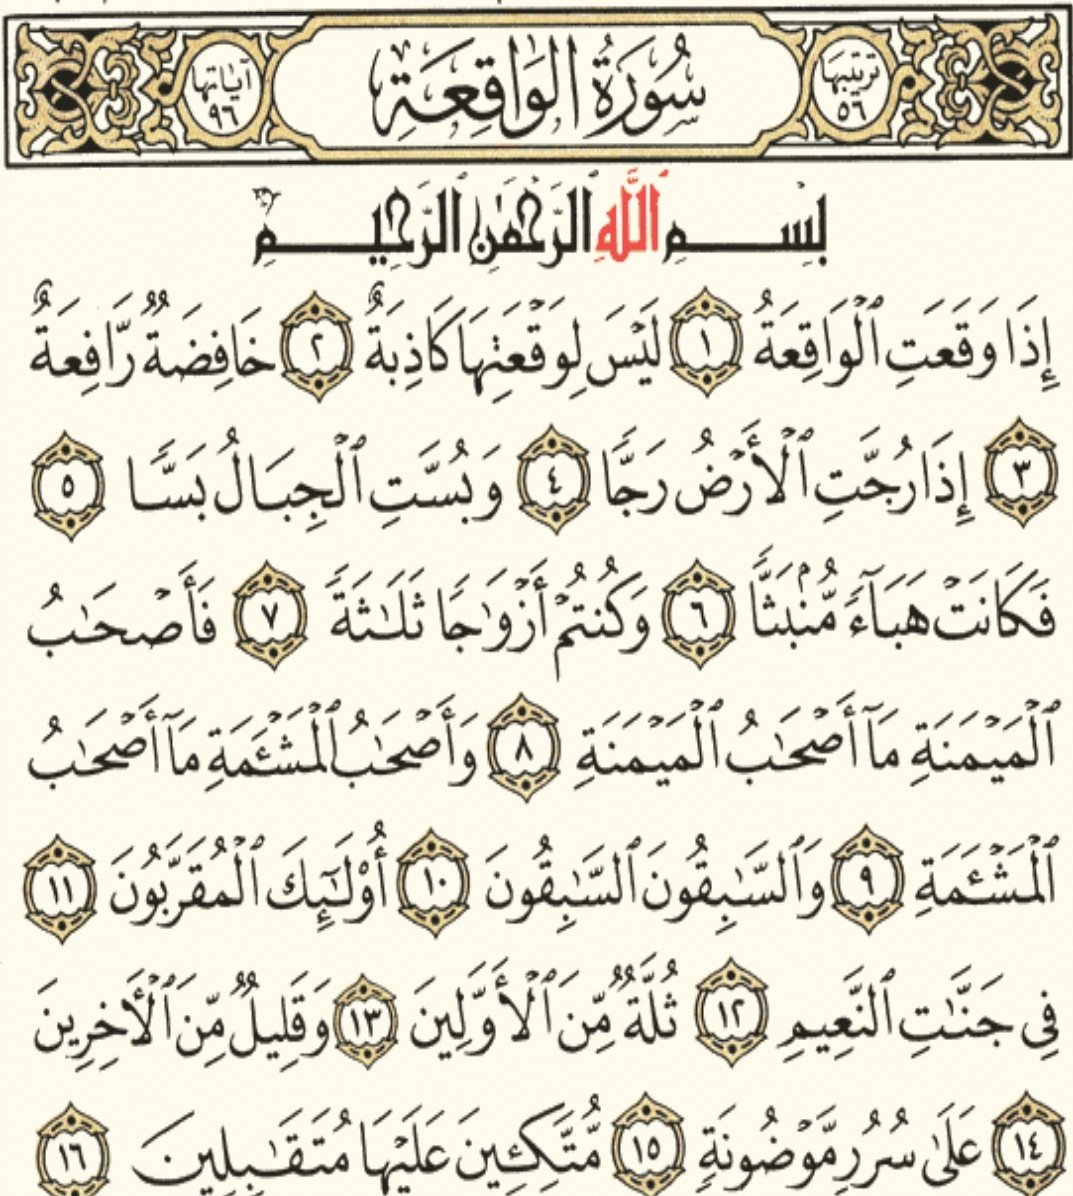 ترتيبها ٥٦ سُورَةُ الوَاقِعَةِ آياتها ٩٦
بِسْمِ ٱللَّهِ ٱلرَّحْمَٰنِ ٱلرَّحِيمِ
إِذَا وَقَعَتِ ٱلْوَاقِعَةُ ١ لَيْسَ لِوَقْعَتِهَا كَاذِبَةٌ ٢ خَافِضَةٌ رَّافِعَةٌ
٣ إِذَا رُجَّتِ ٱلْأَرْضُ رَجًّا ٤ وَبُسَّتِ ٱلْجِبَالُ بَسًّا ٥
فَكَانَتْ هَبَآءً مُّنۢبَثًّا ٦ وَكُنتُمْ أَزْوَٰجًا ثَلَٰثَةً ٧ فَأَصْحَٰبُ
ٱلْمَيْمَنَةِ مَآ أَصْحَٰبُ ٱلْمَيْمَنَةِ ٨ وَأَصْحَٰبُ ٱلْمَشْـَٔمَةِ مَآ أَصْحَٰبُ
ٱلْمَشْـَٔمَةِ ٩ وَٱلسَّٰبِقُونَ ٱلسَّٰبِقُونَ ١٠ أُو۟لَٰٓئِكَ ٱلْمُقَرَّبُونَ ١١
فِى جَنَّٰتِ ٱلنَّعِيمِ ١٢ ثُلَّةٌ مِّنَ ٱلْأَوَّلِينَ ١٣ وَقَلِيلٌ مِّنَ ٱلْأَخِرِينَ
١٤ عَلَىٰ سُرُرٍ مَّوْضُونَةٍ ١٥ مُّتَّكِـِٔينَ عَلَيْهَا مُتَقَٰبِلِينَ ١٦